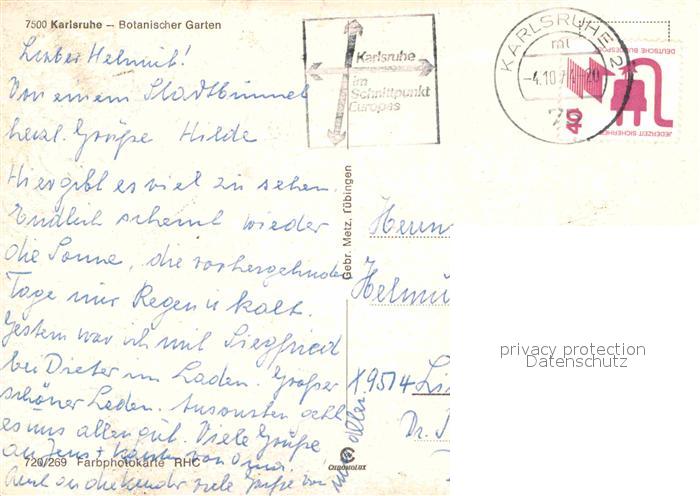 7500 Karlsruhe — Botanischer Garten
Lieber Helmut!
Von einem Stadtbummel
herzl. Grüße Hilde
Hier gibt es viel zu sehen.
Endlich scheint wieder
die Sonne, die vorhergehnden
Tage nur Regen u kalt.
Gestern war ich mit Siegfried
bei Dieter im Laden. Großer
schöner Laden. Ansonsten geht
es uns allen gut. Viele Grüße
an Jens + Karsten von Oma.
Auch an die Kinder viele Grüße von
uns allen
720/269 Farbphotokarte RHC
Karlsruhe
im
Schnittpunkt
Europas
KARLSRUHE 2
ml
-4.10.74-20
75
DEUTSCHE BUNDESPOST
40
JEDERZEIT SICHERHEIT
Gebr. Metz, Tübingen
CHROMOLUX
Herrn
Helmu
X 9514 Li
Dr.
privacy protection
Datenschutz